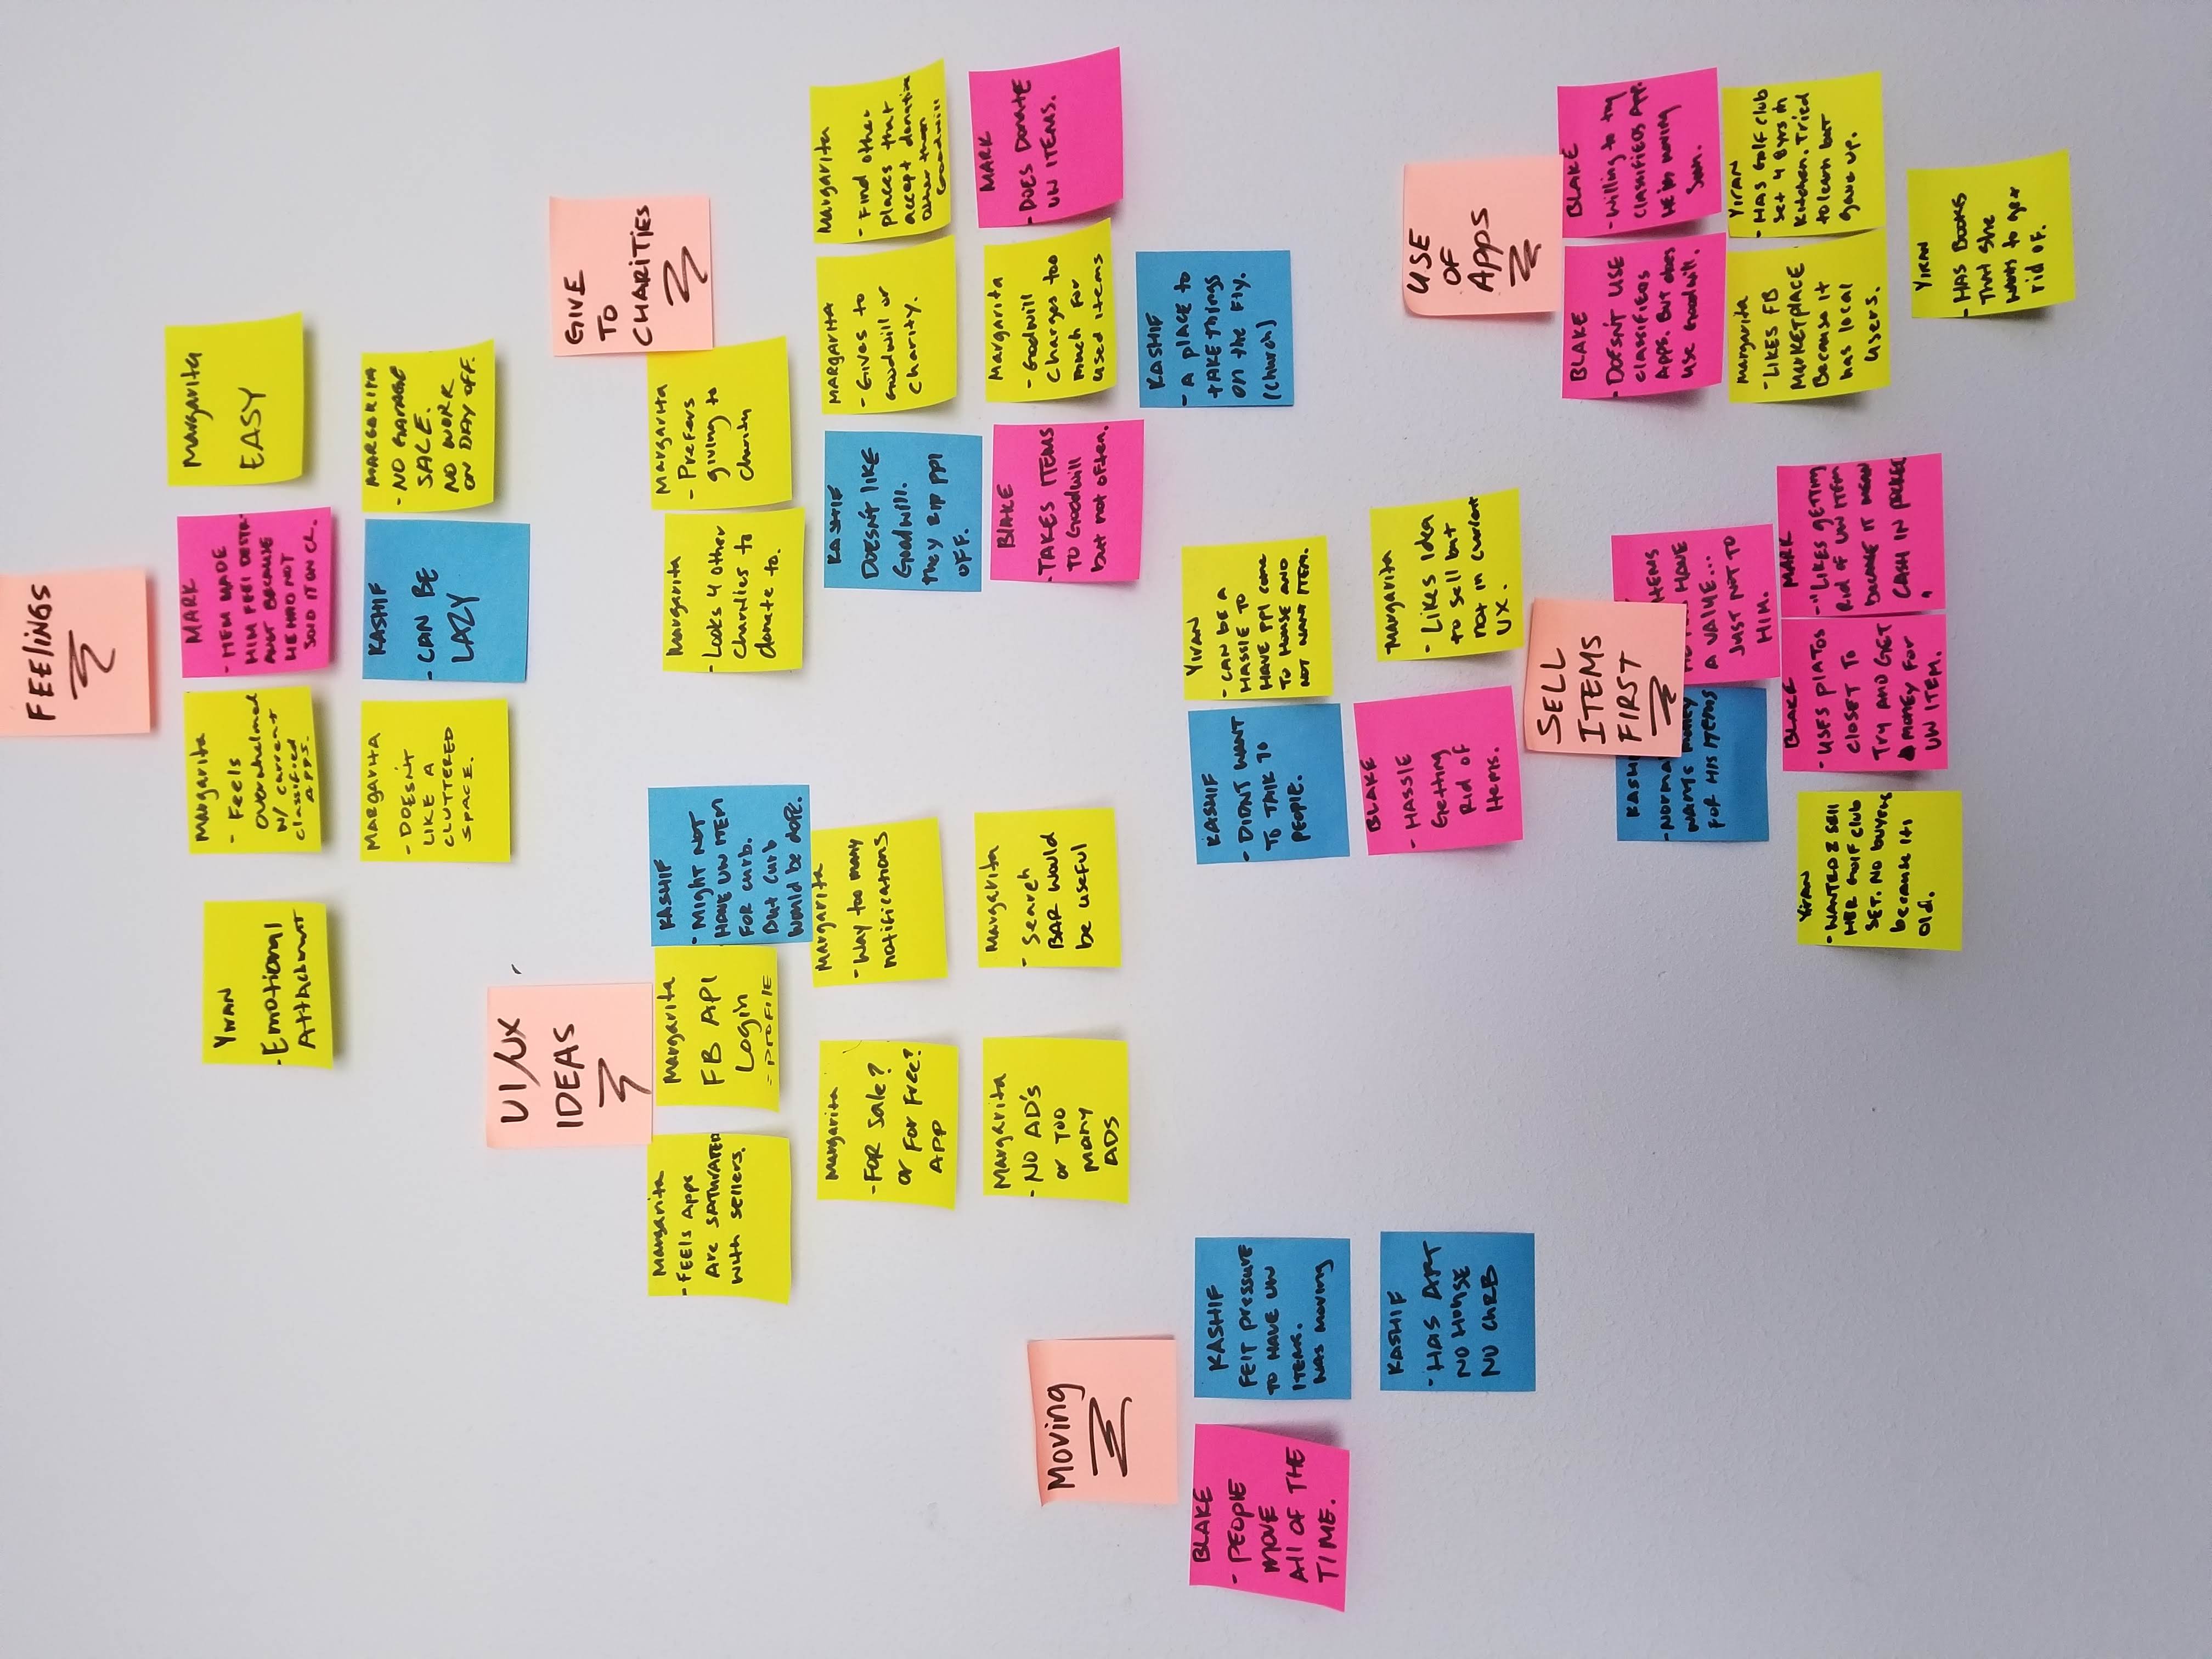 FEELINGS
YIRAN
- Emotional
Attachment
Margarita
- Feels
overwhelmed
w/ current
classified
APPS.
MARK
- MEM MADE
HIM FEEL DESTR-
AUGT BECAUSE
HE HAD NOT
SOLD IT ON CL.
Margarita
EASY
MARGARITA
- DOESN'T
LIKE A
CLUTTERED
SPACE.
KASHIF
- CAN BE
LAZY
MARGARITA
- NO GARAGE
SALE.
NO WORK
ON DAY OFF.
UI/UX
IDEAS
Margarita
- FEELS Apps
Are SATURATED
with sellers.
Margarita
FB API
Login
- PROFILE
KASHIF
- Might NOT
HAVE UW ITEM
FOR curb.
But curb
would be dope.
Margarita
- FOR Sale?
or For Free?
APP
Margarita
- Way too many
notifications
Margarita
- NO AD'S
or TOO
MANY
ADS
Margarita
- Search
BAR would
be useful
GIVE
TO
CHARITIES
Margarita
- Looks 4 other
Charities to
donate to.
Margarita
- Prefers
giving to
charity
KASHIF
DOESN'T LIKE
Goodwill.
they RIP ppl
OFF.
MARGARITA
- Gives to
Goodwill or
Charity.
Margarita
- Find other
places that
accept donation
other than
Goodwill
BLAKE
- TAKES ITEMS
TO Goodwill
but not often.
Margarita
- Godwill
Charges too
much for
used items
MARK
- DOES Donate
UW ITEMS.
KASHIF
- A place to
tAKE things
on the Fly.
(church)
Moving
BLAKE
- PEOPLE
MOVE
All OF THE
TIME.
KASHIF
FEIT pressure
TO HAVE UW
ITEMS.
WAS moving
KASHIF
- HAS APT
NO HOUSE
NO CURB
KASHIF
- DIDNT WANT
TO TALK TO
PEOPLE.
YIRAN
- CAN BE A
HASSLE TO
HAVE PPl come
TO HOUSE AND
NOT WANT ITEM.
BLAKE
- HASSLE
Getting
Rid of
Items.
Margarita
- Likes Idea
to sell but
not in current
UX.
SELL
ITEMS
FIRST
KASHI
- NORMA
WANTS money
FOR HIS ITEMS
ITEMS
HAVE
A VALUE...
JUST NOT TO
HIM.
YIRAN
- WANTED 2 SELL
HER GOLF club
SET. NO buyers
because its
old.
BLAKE
- USES PLATOS
CLOSET TO
TRY AND GET
MONEY FOR
UW ITEM.
MARK
- "LIKES getting
Rid of UW ITEM
BECAUSE IT MEAN
CASH IN POCKET
"
USE
OF
Apps
BLAKE
- DOESN'T USE
CLASSIFIEDS
APPS. BUT does
use Goodwill.
BLAKE
- Willing to try
CLASSIFIEDS APP.
HE is moving
Soon.
Margarita
- LIKES FB
MARKETPLACE
Because it
has local
users.
YIRAN
- HAS Golf club
Set 4 8yrs in
Kitchen. Tried
to learn but
gave up.
YIRAN
- HAS BOOKS
That she
wants to get
rid of.